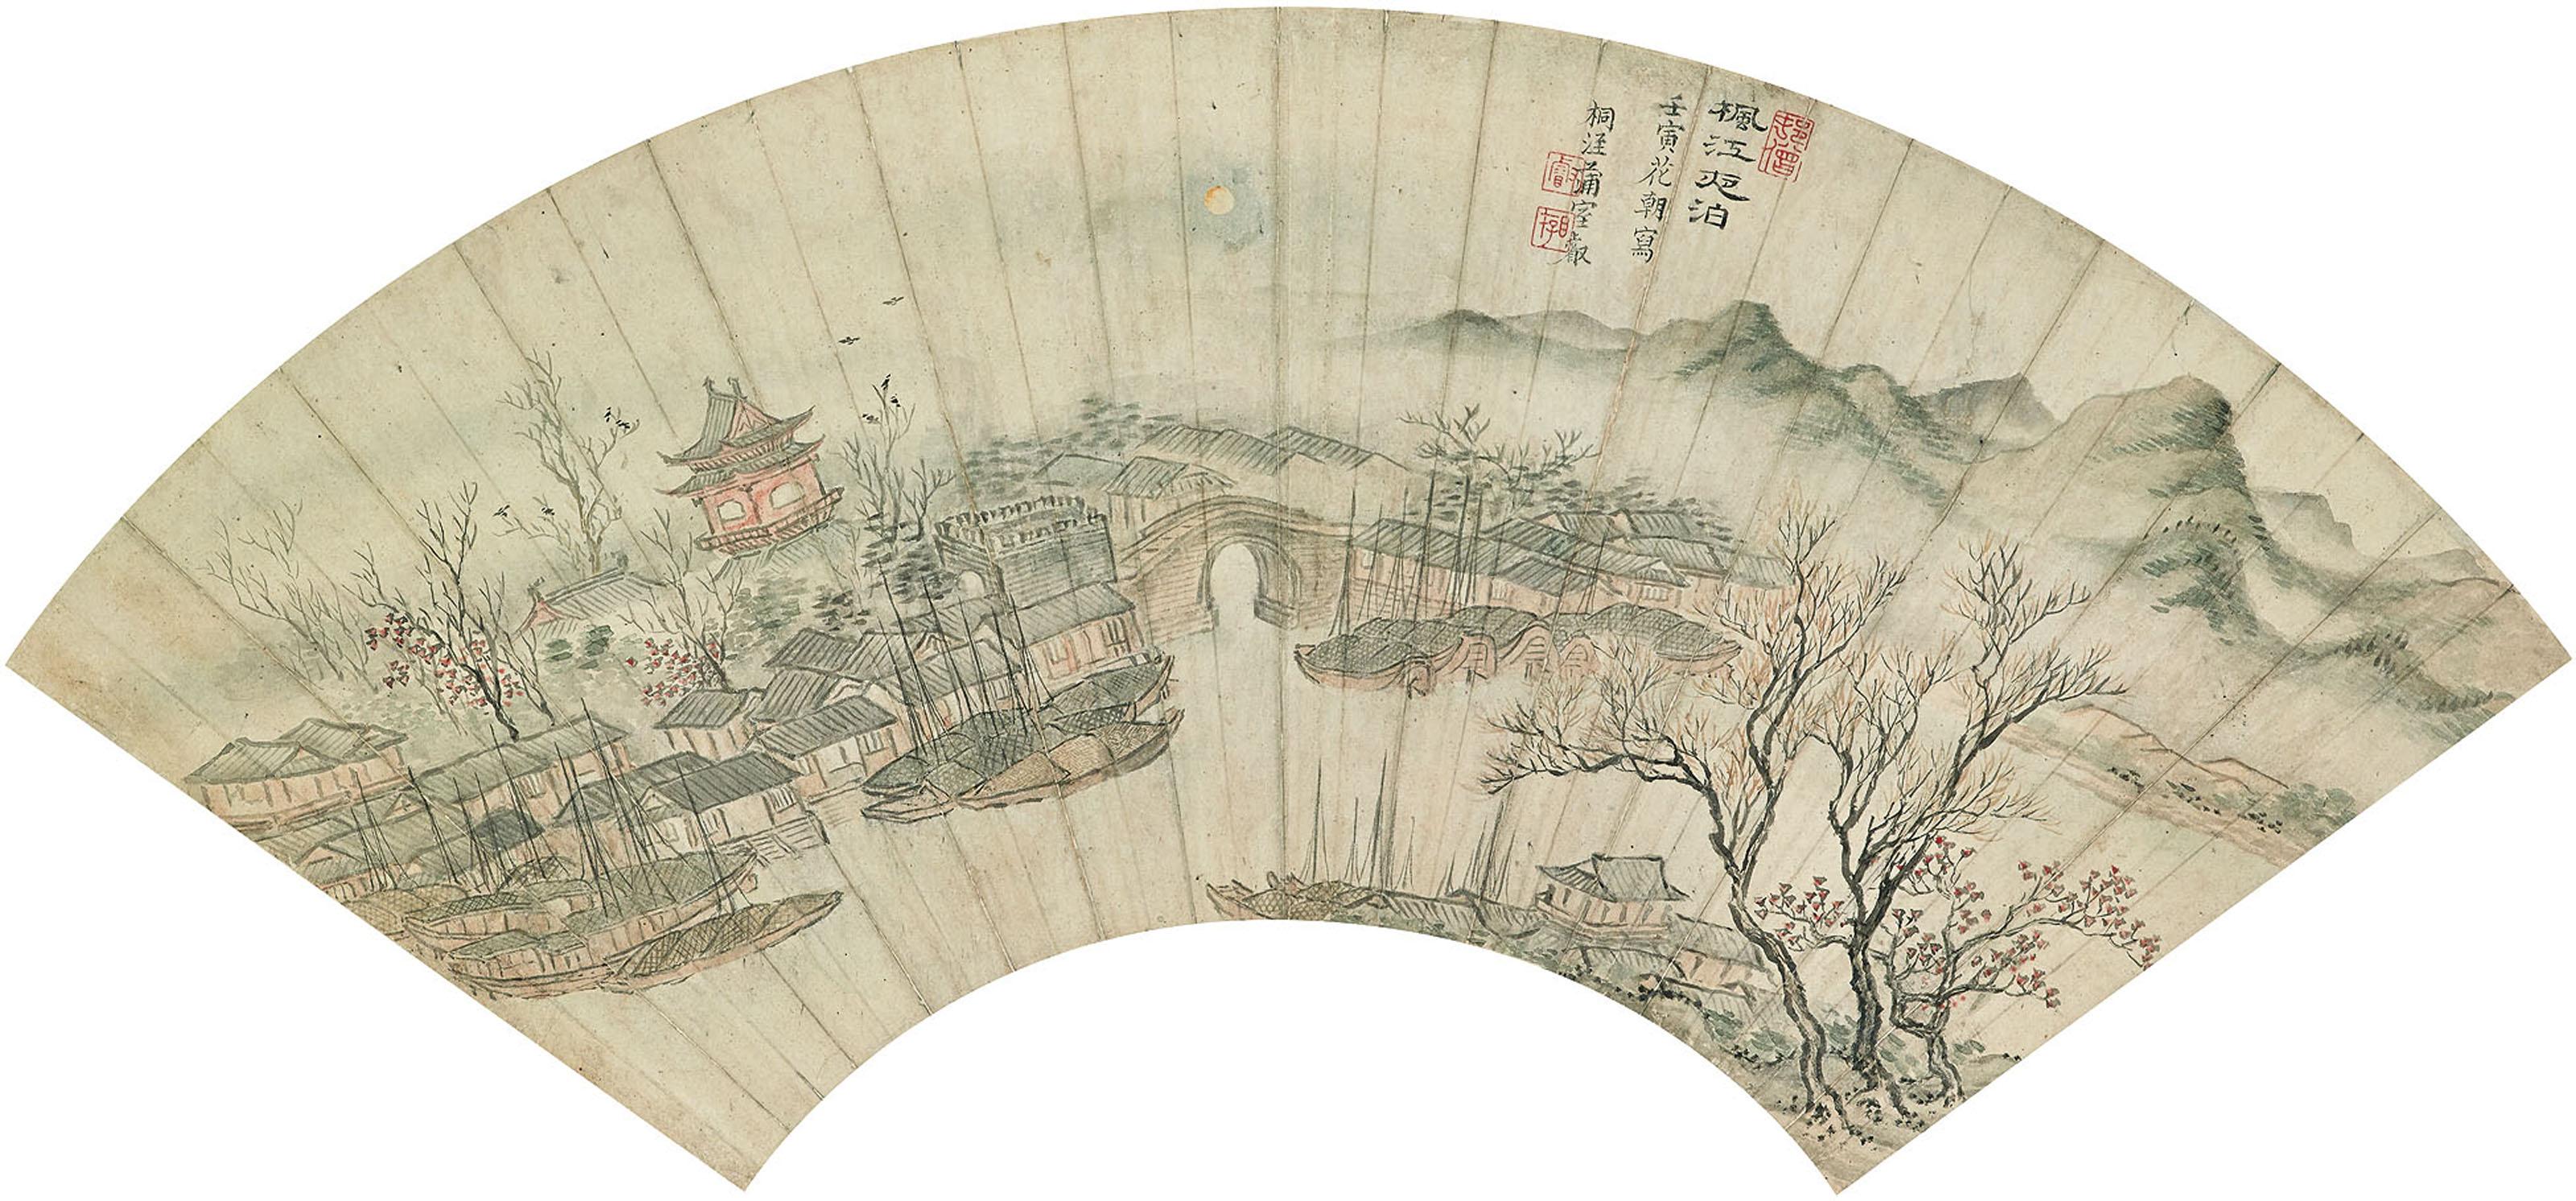 楓江夜泊
壬寅花朝寫
桐淫蒲室叡